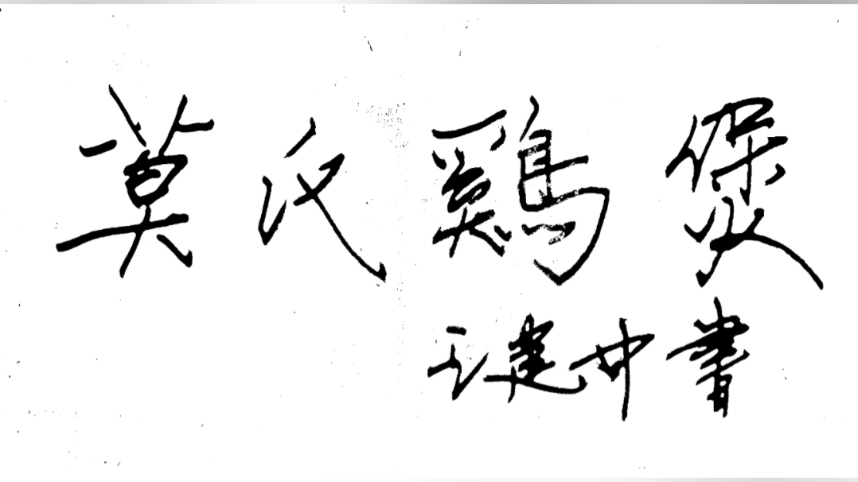 莫氏鷄煲
王建中書